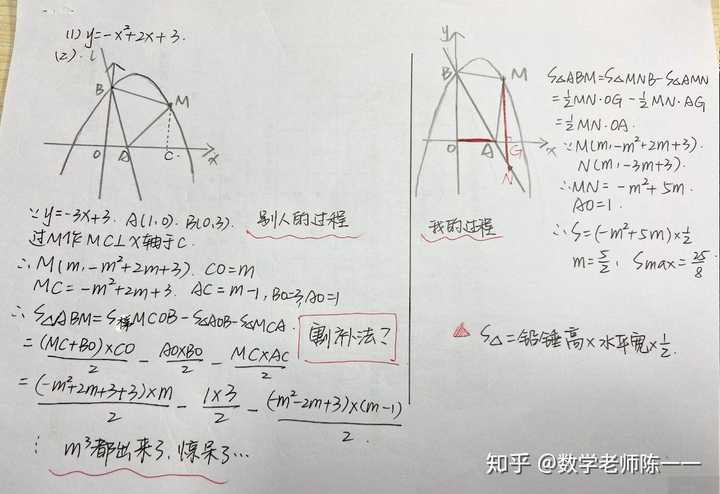 (1) y=-x²+2x+3.
(2).
l
B
M
O
A
C.
x
∵ y=-3x+3. A(1,0). B(0,3).
别人的过程
过M作MC⊥X轴于C.
∴ M(m,-m²+2m+3). CO=m
MC=-m²+2m+3. AC=m-1, BO=3, AO=1
∴ S△ABM=S梯MCOB-S△AOB-S△MCA.
=(MC+BO)×CO/2 - AO×BO/2 - MC×AC/2
割补法?
=(-m²+2m+3+3)×m/2 - 1×3/2 - (-m²-2m+3)×(m-1)/2.
⋮ m³都出来了,惊呆了…
y
B
M
O
A
G
x
N
我的过程
S△ABM=S△MNB-S△AMN
=½MN·OG-½MN·AG
=½MN·OA.
∵M(m,-m²+2m+3).
N(m,-3m+3).
∴MN=-m²+5m.
AO=1.
∴S=(-m²+5m)×½
m=5/2, Smax=25/8
▲ S△=铅锤高×水平宽×½.
知乎 @数学老师陈一一